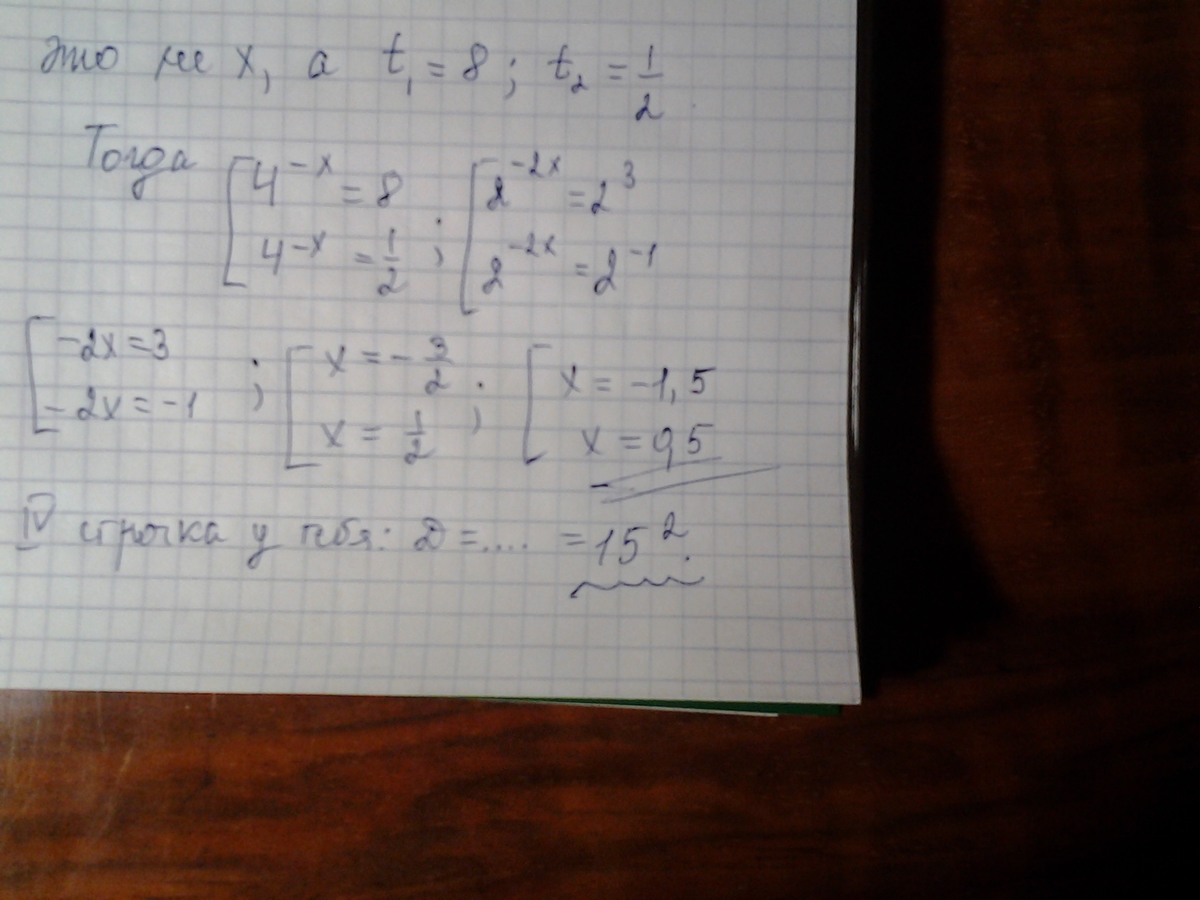 это не x, а t₁ = 8 ; t₂ = 1/2
Тогда [ 4^-x = 8 ; [ 2^-2x = 2^3
4^-x = 1/2 2^-2x = 2^-1
[ -2x = 3 ; [ x = -3/2 ; [ x = -1,5
-2x = -1 x = 1/2 x = 0,5
IV строчка у тебя: D = .... = 15².